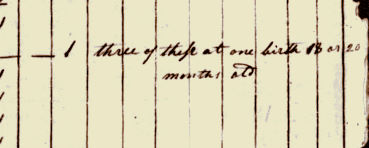 — 1 three of these at one birth 18 or 20
months old